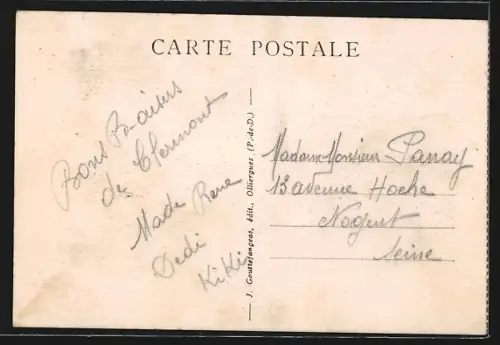 CARTE POSTALE
Bons Baisers
de Clermont
Made Rene
Dedi
KiKi
J. Gouttefangeas, édit., Olliergues (P.-de-D.)
Madame Monsieur Panay
13 avenue Hoche
Nogent
Seine